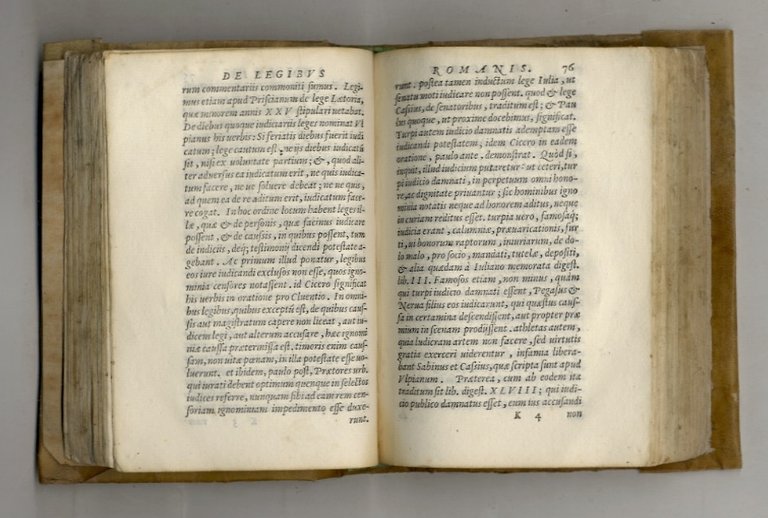 DE LEGIBVS
rum commentariis commoniti sumus. Legi-
mus etiam apud Priscianum de lege Lætoria,
quæ minorem annis XXV stipulari uetabat.
De diebus quoque iudiciariis leges nominat Vl
pianus his uerbis: Si feriatis diebus fuerit iudi
catum; lege cautum est, ne ijs diebus iudicatũ
sit, nisi ex uoluntate partium; &, quod ali-
ter aduersus ea iudicatum erit, ne quis iudica-
tum facere, ne ue soluere debeat; ne ue quis,
ad quem ea de re aditum erit, iudicatum face-
re cogat. In hoc ordine locum habent leges il-
læ, quæ & de personis, quæ facinus iudicare
possent, & de caussis, in quibus possent, tum
de indiciis, deq; testimonij dicendi potestate a-
gebant. Ac primum illud ponatur, legibus
eos iure iudicandi exclusos non esse, quos igno-
minia censores notassent. id Cicero significat
his uerbis in oratione pro Cluentio. In omni-
bus legibus, quibus exceptũ est, de quibus caus-
sis aut magistratum capere non liceat, aut iu-
dicem legi, aut alterum accusare, hæc ignomi
niæ caussa prætermissa est. timoris enim caus-
sam, non uitæ pœnam, in illa potestate esse uo-
luerunt. et ibidem, paulo post, Prætores urb.
qui iurati debent optimum quemque in selectos
iudices referre, nunquam sibi ad eam rem cen-
soriam ignominiam impedimento esse duxe-
runt.
ROMANIS. 76
runt. postea tamen inductum lege Iulia, ut
senatu moti iudicare non possent. quod & lege
Cassius, de senatoribus, traditum est; & Pau
lus quoque, ut proxime docebimus, significat.
Turpi autem iudicio damnatis ademptam esse
iudicandi potestatem, idem Cicero in eadem
oratione, paulo ante, demonstrat. Quòd si,
inquit, illud iudicium putaretur: ut ceteri, tur
pi iudicio damnati, in perpetuum omni hono-
re, ac dignitate priuantur; sic hominibus igno
minia notatis neque ad honorem aditus, neque
in curiam reditus esset. turpia uero, famosaq;
iudicia erant, calumniæ, præuaricationis, fur
ti, ui bonorum raptorum, iniuriarum, de do-
lo malo, pro socio, mandati, tutelæ, depositi,
& alia quædam à Iuliano memorata digest.
lib. III. Famosos etiam, non minus, quàm
qui turpi iudicio damnati essent, Pegasus &
Nerua filius eos iudicarunt, qui quæstus caus-
sa in certamina descendissent, aut propter præ
mium in scenam prodissent. athletas autem,
quia ludicram artem non facere, sed uirtutis
gratia exerceri uiderentur, infamia libera-
bant Sabinus et Cassius, quæ scripta sunt apud
Vlpianum. Præterea, cum ab eodem ita
traditum sit lib. digest. XLVIII; qui iudi-
cio publico damnatus esset, eum ius accusandi
K 4 non